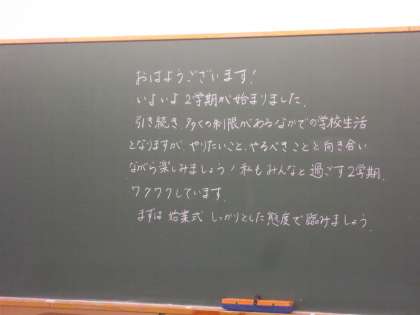 おはようございます!
いよいよ2学期が始まりました。
引き続き、多くの制限があるなかでの学校生活
となりますが、やりたいこと、やるべきことと向き合い
ながら楽しみましょう!私もみんなと過ごす2学期、
ワクワクしています。
まずは始業式 しっかりとした態度で臨みましょう。